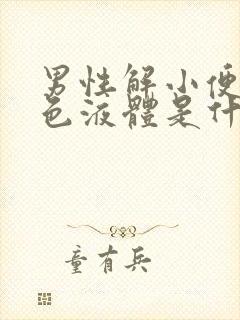 男性解小便
色液體是什
童有兵